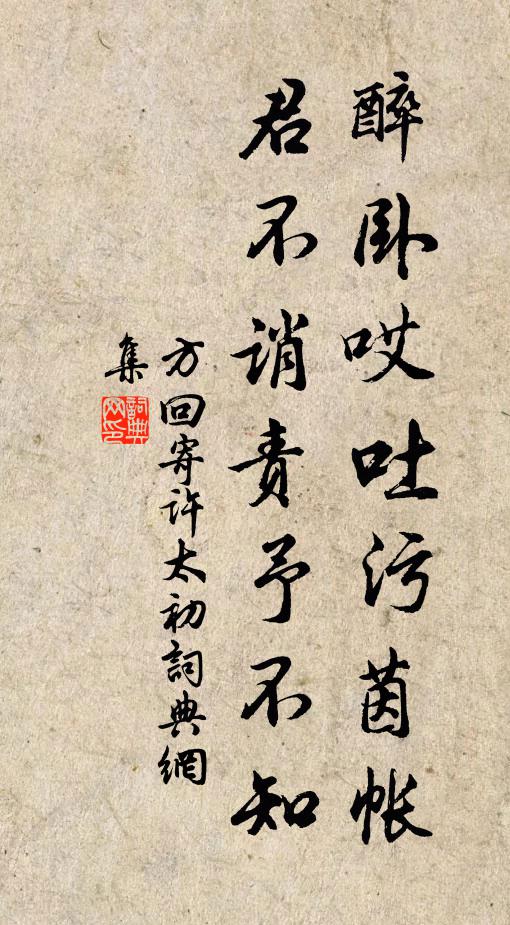 醉卧哎吐污茵帐
君不誚责予不知
方回寄许太初詞典網
集
詞典网印